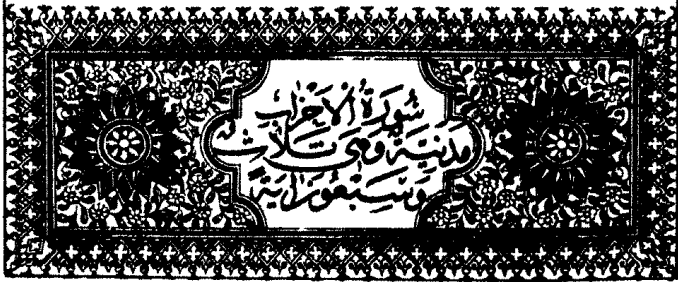 سُورَةُ الْأَحْزَابِ
مَدَنِيَّةٌ وَهِيَ ثَلَاثٌ
وَسَبْعُونَ آيَةً